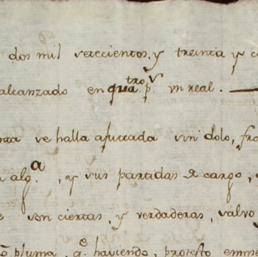 dos mil setecientos, y treinta y
alcanzado en quatro p.s y un real.
se halla ajustada sin dolo,
alg.a, y sus partidas de cargo,
son ciertas, y verdaderas, salvo
pluma, q.e haviendo, protesto